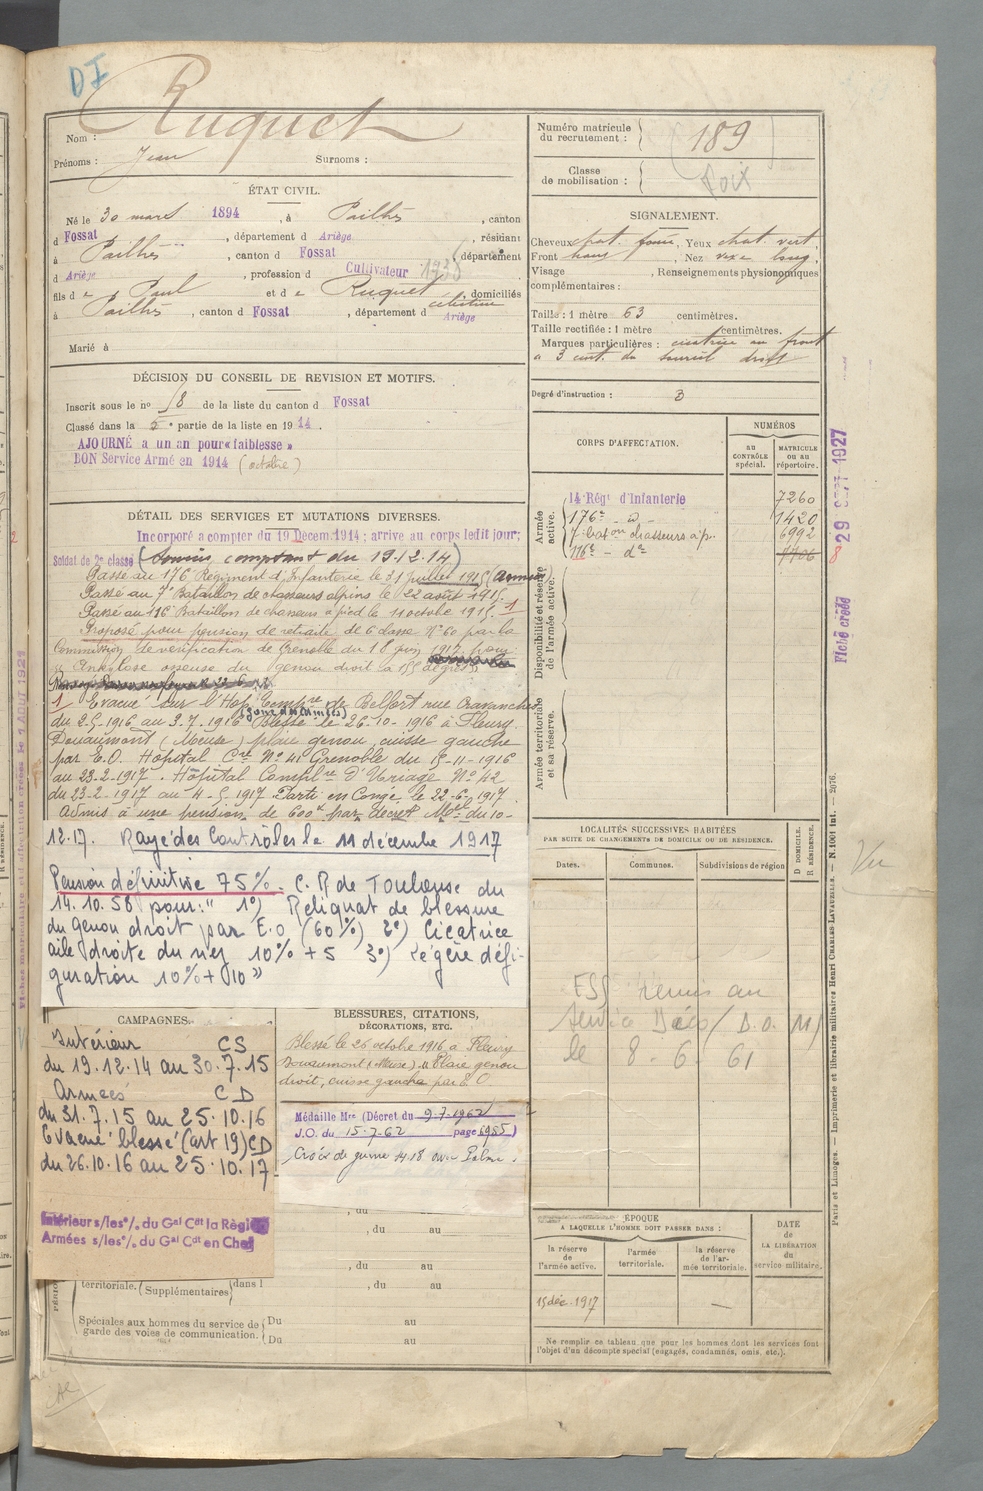 DI
Ruquet
Nom :
Prénoms : Jean Surnoms :
Numéro matricule du recrutement : 189
Classe de mobilisation : Foix
ÉTAT CIVIL.
Né le 30 mars 1894, à Pailhès, canton
d Fossat, département d Ariège, résidant
à Pailhès, canton d Fossat, département
d Ariège, profession d Cultivateur
fils de Paul et de Ruquet Célestine, domiciliés
à Pailhès, canton d Fossat, département d Ariège
Marié à
SIGNALEMENT.
Cheveux chat. foncé, Yeux chat. vert,
Front haut, Nez vexe long,
Visage , Renseignements physionomiques
complémentaires :
Taille : 1 mètre 63 centimètres.
Taille rectifiée : 1 mètre centimètres.
Marques particulières : cicatrice au front
à 3 cent. du sourcil droit
Degré d'instruction : 3
DÉCISION DU CONSEIL DE REVISION ET MOTIFS.
Inscrit sous le no 58 de la liste du canton d Fossat
Classé dans la 5e partie de la liste en 1914.
AJOURNÉ a un an pour « faiblesse »
BON Service Armé en 1914 (octobre)
CORPS D'AFFECTATION.
NUMÉROS
au CONTRÔLE spécial.
MATRICULE ou au répertoire.
Armée active.
14 Régt d'Infanterie 7260
176e - d - 1420
7 batон chasseurs à p. 6992
116e - do 7706
Disponibilité et réserve de l'armée active.
Armée territoriale et sa réserve.
DÉTAIL DES SERVICES ET MUTATIONS DIVERSES.
Incorporé a compter du 19 Decem. 1914 ; arrive au corps ledit jour ;
Soldat de 2e classe (Soumis, comptant du 19.12.14)
Passé au 176 Régiment d'Infanterie le 31 juillet 1915 (Armées)
Passé au 7e Bataillon de chasseurs alpins le 22 août 1915.
Passé au 116 Bataillon de chasseurs à pied le 11 octobre 1915. 1
Proposé pour pension de retraite de 6 classe No 60 par la
Commission de vérification de Grenoble du 18 juin 1917 pour
Ankylose osseuse du genou droit à 155 degrés
1 Evacué sur l'Hop. Tempre de Belfort rue Cravanche
(Zone des armées)
du 2.5.1916 au 3.7.1916 Blessé le 26-10-1916 à Fleury
Douaumont (Meuse) plaie genou, cuisse gauche
par E.O. Hôpital Cre No 41 Grenoble du 15-11-1916
au 23-2-1917. Hôpital Complre D'Uriage No 42
du 23-2-1917 au 4-5-1917 Parti en Congé le 22-6-1917.
Admis à une pension de 600f par décret Mel du 10-
12.17. Rayé des Contrôles le 11 décembre 1917
Pension définitive 75% - C.R de Toulouse du
14.10.58 pour : " 1o) Reliquat de blessure
du genou droit par E.O (60%) 2o) Cicatrice
aile droite du nez 10% + 5 3o) Légère défi-
guration 10% + 10 "
LOCALITÉS SUCCESSIVES HABITÉES
PAR SUITE DE CHANGEMENTS DE DOMICILE OU DE RÉSIDENCE.
Dates. Communes. Subdivisions de région
D DOMICILE.
R RÉSIDENCE.
remis au
le 8.6.61
CAMPAGNES.
Intérieur CS
du 19.12.14 au 30.7.15
Armées CD
du 31.7.15 au 25.10.16
Evacué blessé (art 19) CD
du 26.10.16 au 25.10.17
Intérieur s/les o/. du Gal Cdt la Région
Armées s/les o/. du Gal Cdt en Chef
BLESSURES, CITATIONS,
DÉCORATIONS, ETC.
Blessé le 26 octobre 1916 à Fleury
Douaumont (Meuse) " Plaie genou
droit, cuisse gauche par E.O.
Médaille Mre (Décret du 9-7-1962
J.O. du 15-7-62 page 6985)
Croix de guerre 14.18 avec Palme.
du au
, du au
, du au
territoriale. (Supplémentaires dans l , du au
Spéciales aux hommes du service de garde des voies de communication.
Du au
Du au
ÉPOQUE
A LAQUELLE L'HOMME DOIT PASSER DANS :
la réserve de l'armée active.
l'armée territoriale.
la réserve de l'armée territoriale.
DATE de LA LIBÉRATION du service militaire.
15 déc. 1917
Ne remplir ce tableau que pour les hommes dont les services font
l'objet d'un décompte spécial (engagés, condamnés, omis, etc.).
8 29 1927
Fiche créée
Vu
Paris et Limoges. — Imprimerie et librairie militaires Henri CHARLES-LAVAUZELLE. — N. 1001 Int. — 2076.